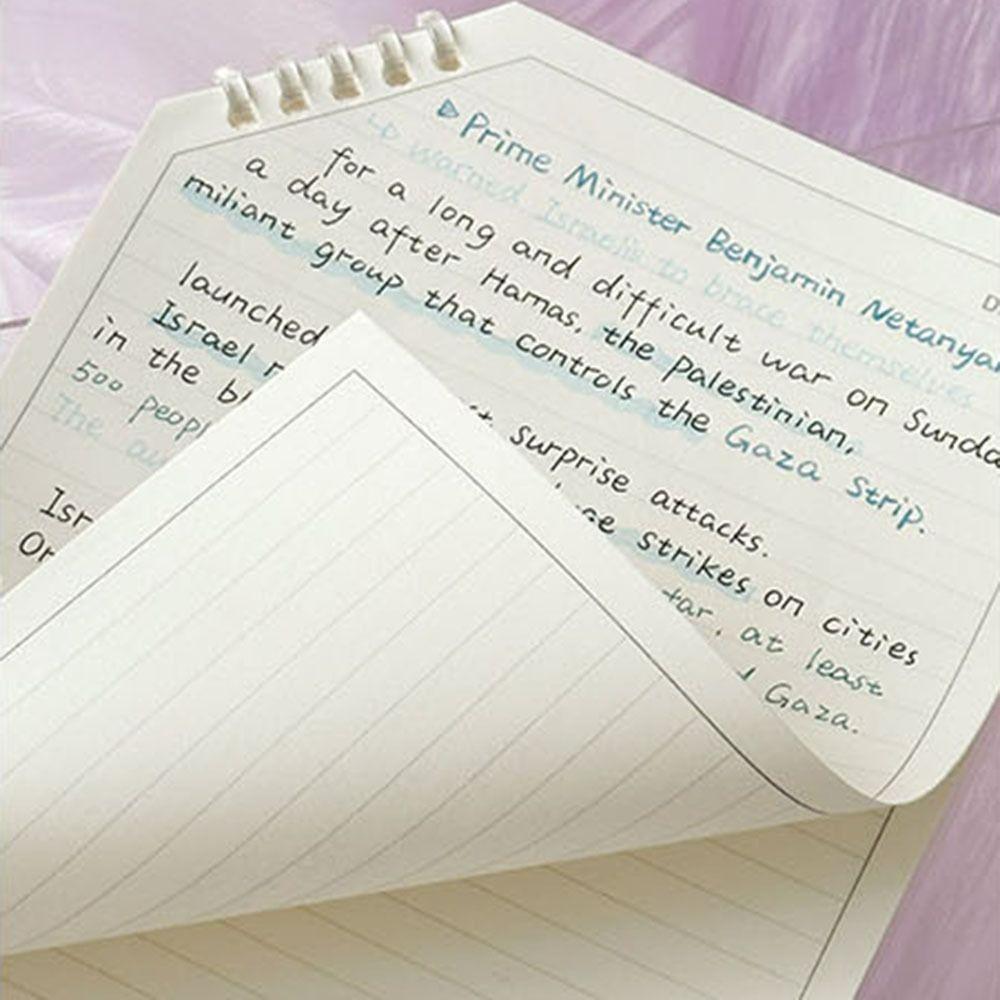 ▷Prime Minister Benjamin Netanya
↳ warned Israelis to brace themselves
for a long and difficult war on Sunda
a day after Hamas, the palestinian,
miliant group that controls the Gaza Strip.
launched surprise attacks.
Israel strikes on cities
in the at least
500 Gaza.
The
D